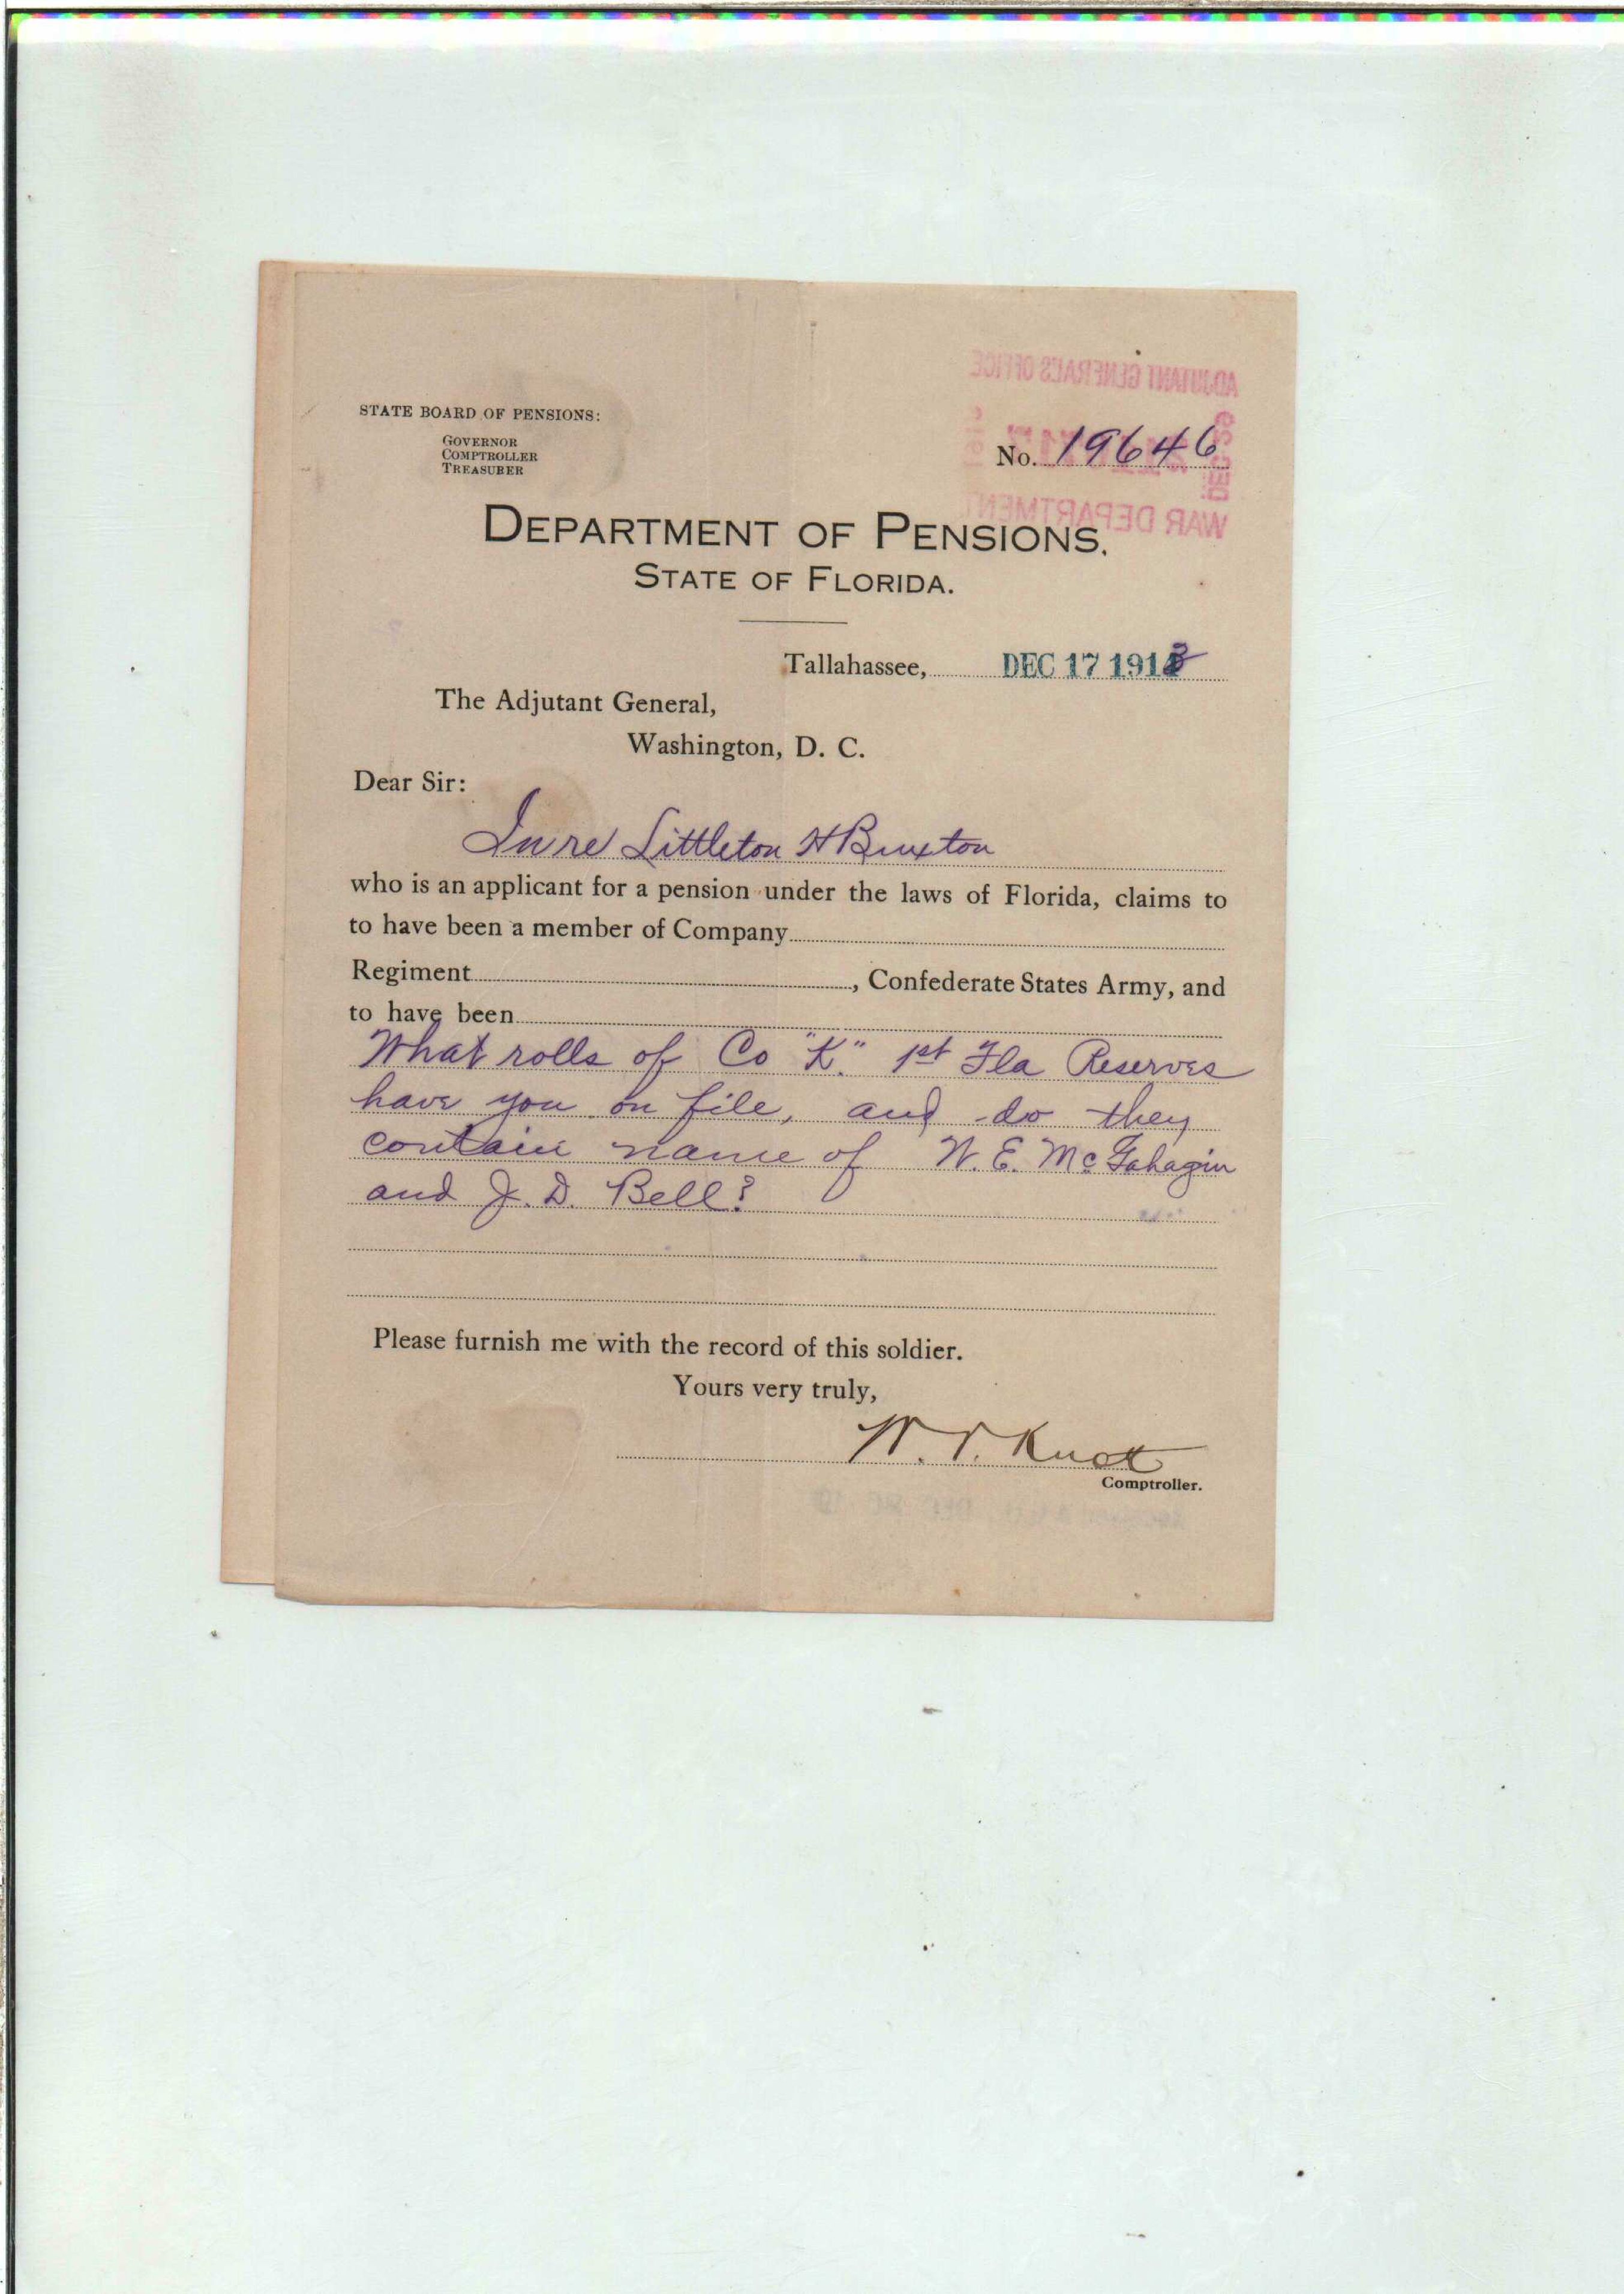 STATE BOARD OF PENSIONS:
GOVERNOR
COMPTROLLER
TREASURER
ADJUTANT GENERAL'S OFFICE
No. 19646
WAR DEPARTMENT
DEPARTMENT OF PENSIONS.
STATE OF FLORIDA.
Tallahassee, DEC 17 1913
The Adjutant General,
Washington, D. C.
Dear Sir:
In re Littleton H Bruxton
who is an applicant for a pension under the laws of Florida, claims to
to have been a member of Company
Regiment , Confederate States Army, and
to have been
What rolls of Co "K." 1st Fla Reserves
have you on file, and do they
contain name of W. E. McGahagin
and J. D. Bell?
Please furnish me with the record of this soldier.
Yours very truly,
W. V. Knott
Comptroller.